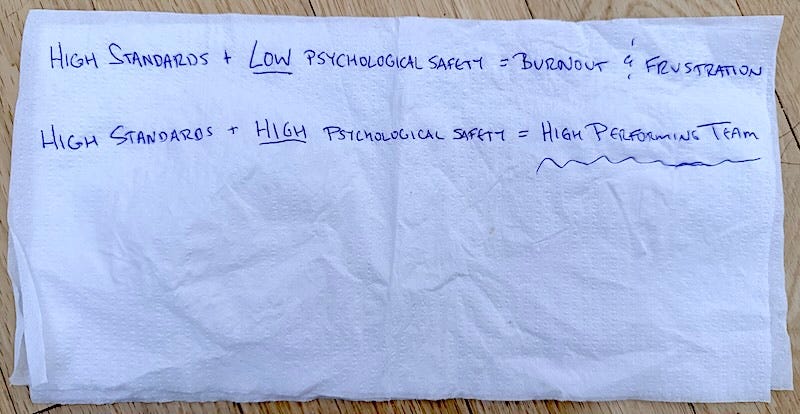 HIGH STANDARDS + LOW PSYCHOLOGICAL SAFETY = BURNOUT & FRUSTRATION
HIGH STANDARDS + HIGH PSYCHOLOGICAL SAFETY = HIGH PERFORMING TEAM